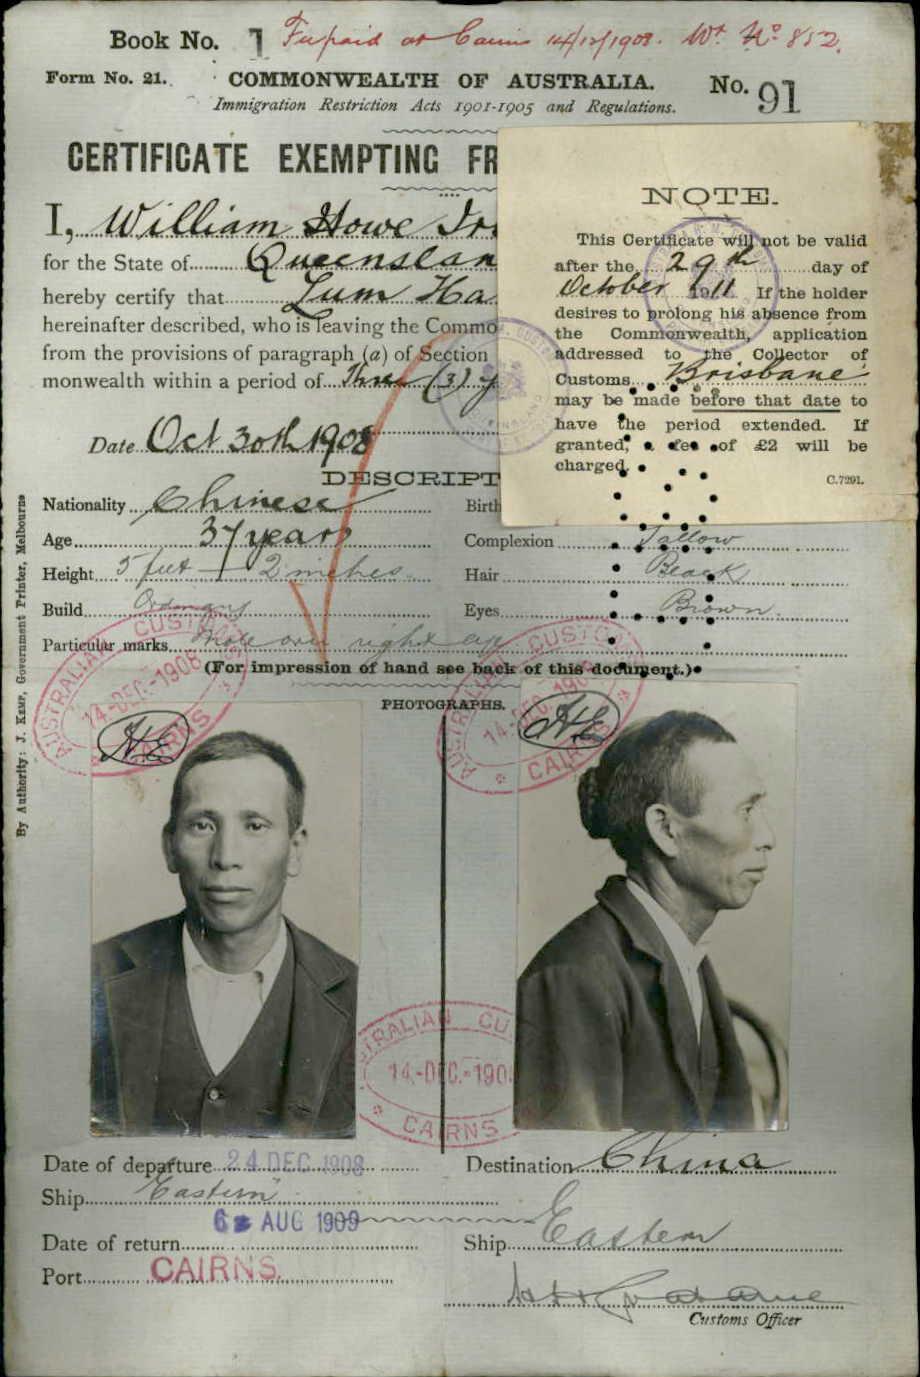 Book No. 1 at Cairns 14/12/1908. Wt No 852.
Form No. 21. COMMONWEALTH OF AUSTRALIA. No. 91
Immigration Restriction Acts 1901-1905 and Regulations.
CERTIFICATE EXEMPTING FR
I, William Howe
for the State of Queenslan
hereby certify that Lum Ha
hereinafter described, who is leaving the Commo
from the provisions of paragraph (a) of Section
monwealth within a period of Three (3) y
Date Oct 30th 1908
DESCRIPT
Nationality Chinese Birth
Age 37 years Complexion Sallow
Height 5 feet 2 inches Hair Black
Build Ordinary Eyes Brown.
Particular marks Mole over right
(For impression of hand see back of this document.)
PHOTOGRAPHS.
NOTE.
This Certificate will not be valid
after the 29th day of
October 1911 If the holder
desires to prolong his absence from
the Commonwealth, application
addressed to the Collector of
Customs Brisbane
may be made before that date to
have the period extended. If
granted, a fee of £2 will be
charged.
C.7291.
By Authority: J. KEMP, Government Printer, Melbourne
AUSTRALIAN CUSTOMS
14-DEC.-1908
CAIRNS
AUSTRALIAN CUSTOM
14-DEC.-190
CAIRNS
TRALIAN CU
14.-DEC.-190
CAIRNS
Date of departure 24 DEC 1908 Destination China
Ship Eastern
6 AUG 1909
Date of return Ship Eastern
Port CAIRNS.
Customs Officer